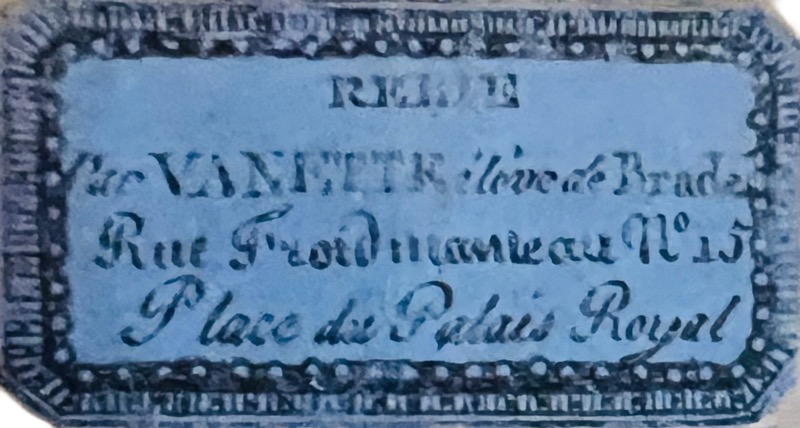 RELIÉ
Par VANETTE élève de Bradel
Rue Froidmanteau Nº 15
Place du Palais Royal